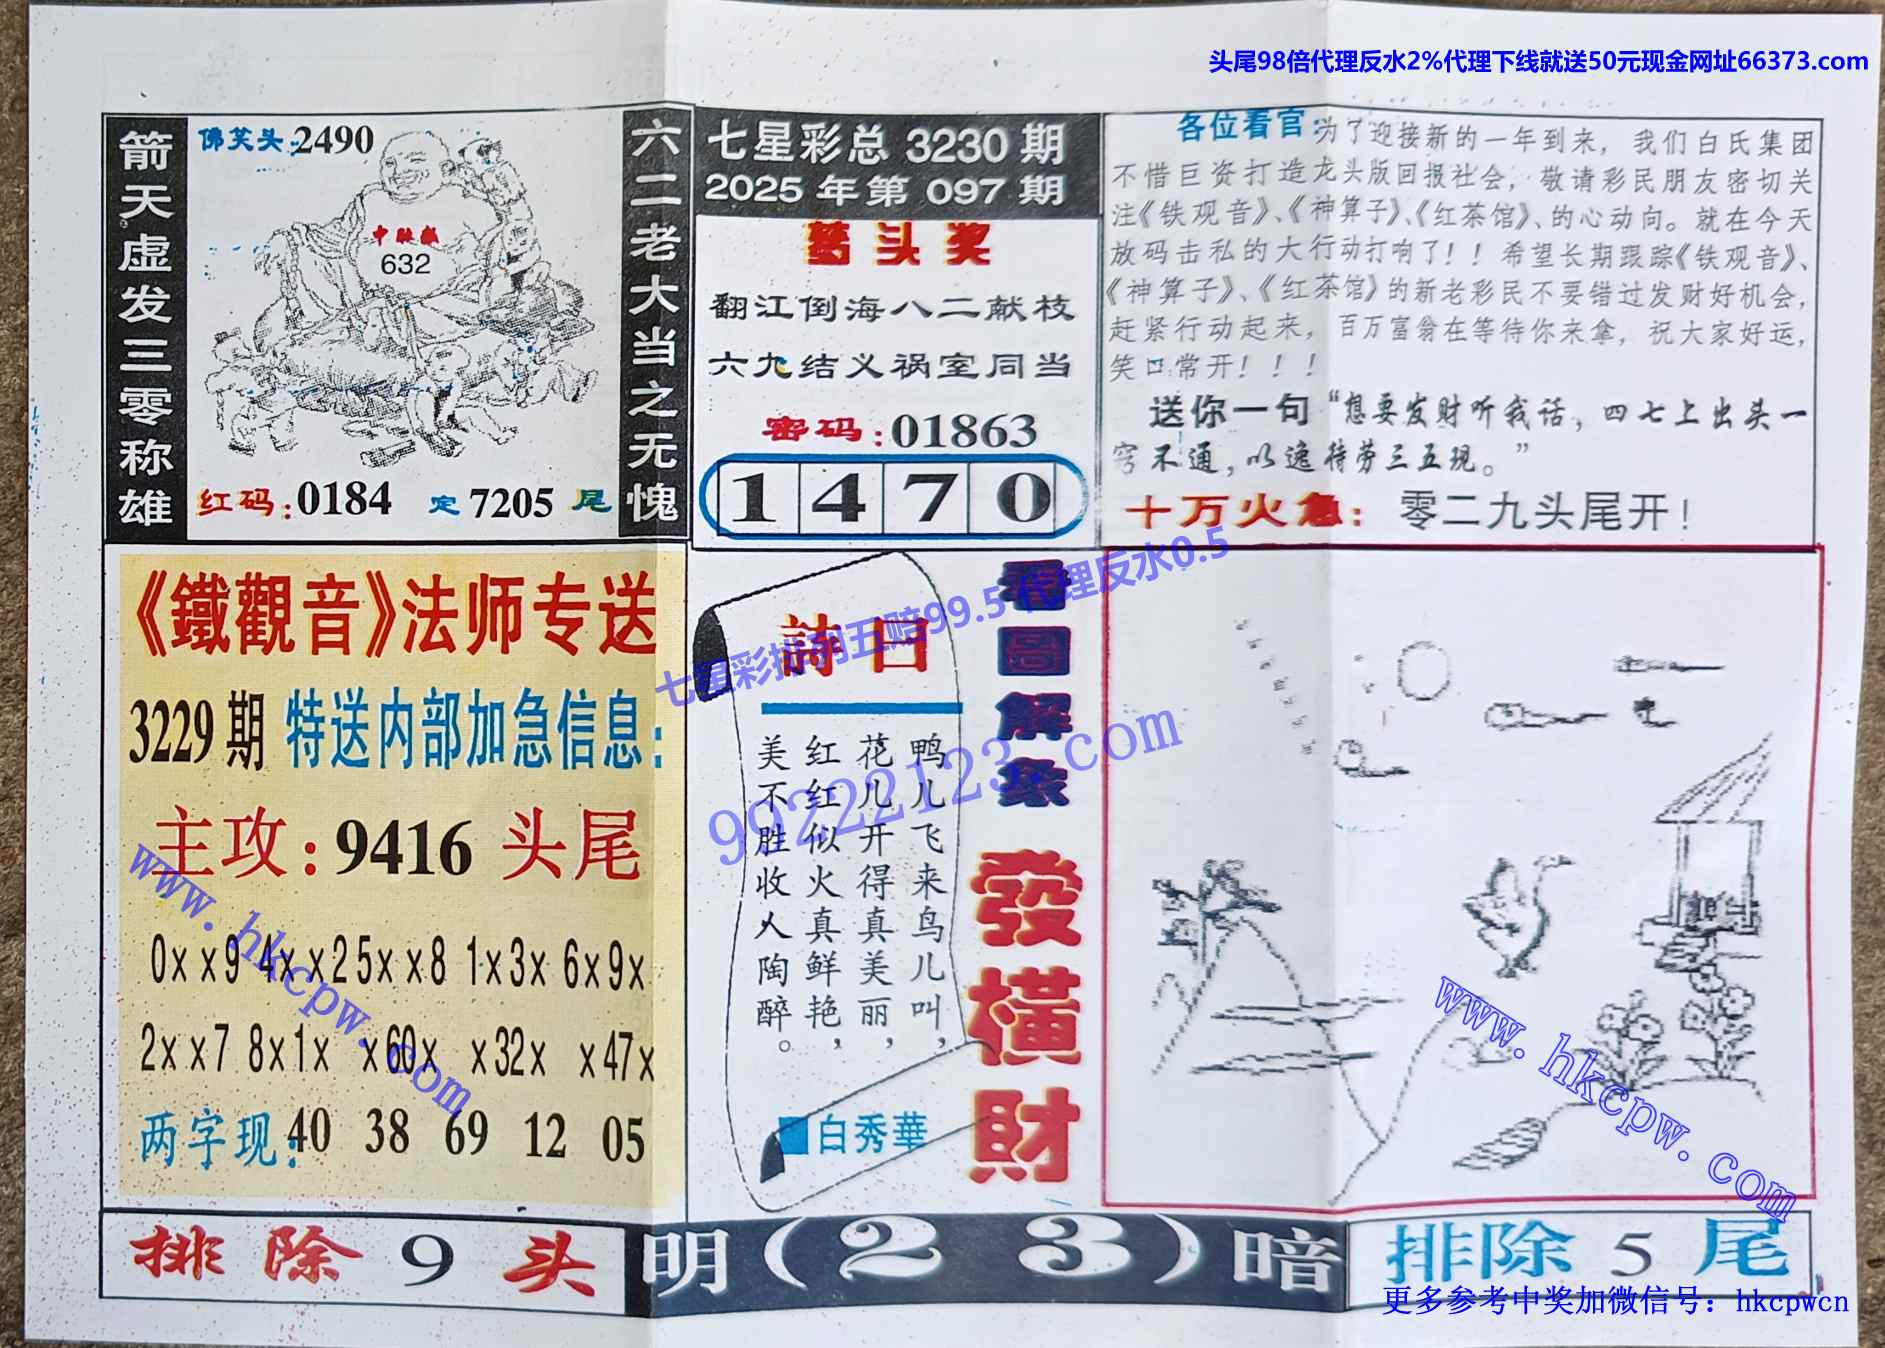 头尾98倍代理反水2%代理下线就送50元现金网址66373.com
箭天虚发三零称雄
佛笑头:2490
中肚藏
632
红码:0184 定7205尾
六二老大当之无愧
七星彩总 3230 期
2025 年第 097 期
梦头奖
翻江倒海八二献枝
六九结义祸室同当
密码:01863
1 4 7 0
各位看官:为了迎接新的一年到来，我们白氏集团
不惜巨资打造龙头版回报社会，敬请彩民朋友密切关
注《铁观音》、《神算子》、《红茶馆》、的心动向。就在今天
放码击私的大行动打响了！！希望长期跟踪《铁观音》、
《神算子》、《红茶馆》的新老彩民不要错过发财好机会，
赶紧行动起来，百万富翁在等待你来拿，祝大家好运，
笑口常开！！！
送你一句“想要发财听我话，四七上出头一
窍不通，以逸待劳三五现。”
十万火急：零二九头尾开！
《鐵觀音》法师专送
3229期 特送内部加急信息：
主攻：9416 头尾
0××9 4××2 5××8 1×3× 6×9×
2××7 8×1× ×60× ×32× ×47×
两字现：40 38 69 12 05
詩曰
鸭儿飞来鸟儿叫，
花儿开得真美丽，
红红似火真鲜艳，
美不胜收人陶醉。
白秀華
看圖解象
發橫財
七星彩排列五赔99.5 代理反水0.5
90222123.com
www.hkcpw.com
www.hkcpw.com
排除9头
明(23)暗
排除5尾
更多参考中奖加微信号：hkcpwcn